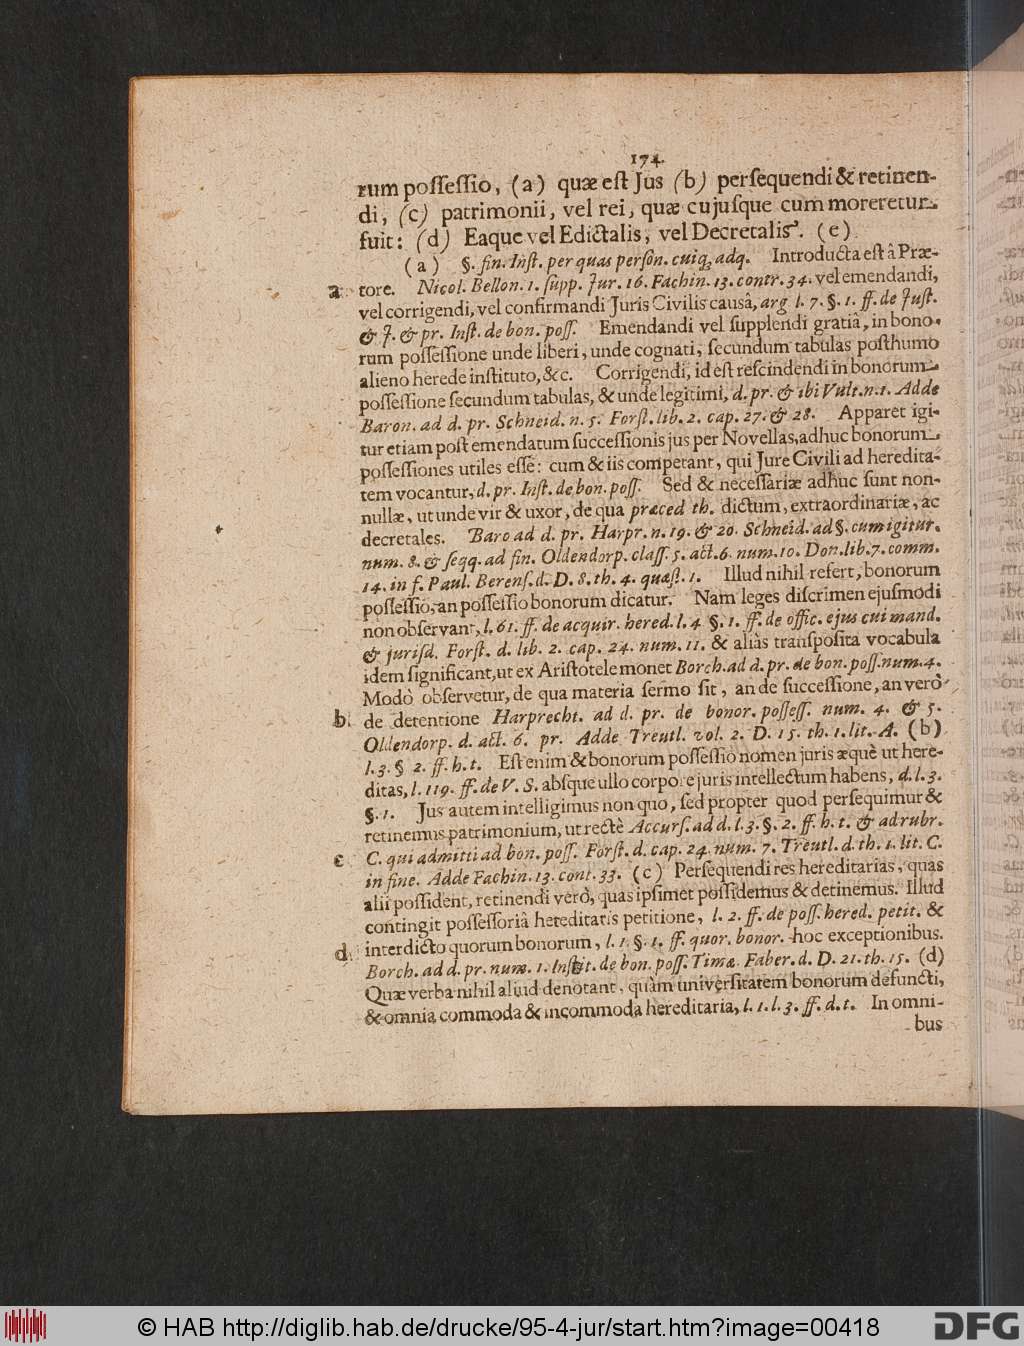 174.
rum possessio, (a) quæ est Jus (b) persequendi & retinen-
di, (c) patrimonii, vel rei, quæ cujusque cum moreretur
fuit: (d) Eaque vel Edictalis, vel Decretalis. (e)
(a) §. fin. Inst. per quas person. cuiq; adq. Introducta est â Præ-
a tore. Nicol. Bellon. 1. supp. Jur. 16. Fachin. 13. contr. 34. vel emendandi,
vel corrigendi, vel confirmandi Juris Civilis causâ, arg l. 7. §. 1. ff. de Just.
& J. & pr. Inst. de bon. poss. Emendandi vel supplendi gratiâ, in bono-
rum possessione unde liberi, unde cognati, secundum tabulas posthumo
alieno herede instituto, &c. Corrigendi, id est rescindendi in bonorum
possessione secundum tabulas, & unde legitimi, d. pr. & ibi Vult. n. 1. Adde
Baron. ad d. pr. Schneid. n. 5. Forst. lib. 2. cap. 27. & 28. Apparet igi-
tur etiam post emendatum successionis jus per Novellas, adhuc bonorum
possessiones utiles esse: cum & iis competant, qui Jure Civili ad heredita-
tem vocantur, d. pr. Inst. de bon. poss. Sed & necessariæ adhuc sunt non-
nullæ, ut unde vir & uxor, de qua præced th. dictum, extraordinariæ, ac
decretales. Baro ad d. pr. Harpr. n. 19. & 20. Schneid. ad §. cum igitur.
num. 8. & seqq. ad fin. Oldendorp. class. 5. act. 6. num. 10. Don. lib. 7. comm.
14. in f. Paul. Berens. d. D. 8. th. 4. quæst. 1. Illud nihil refert, bonorum
possessio, an possessio bonorum dicatur. Nam leges discrimen ejusmodi
non observant, l. 61. ff. de acquir. hered. l. 4 §. 1. ff. de offic. ejus cui mand.
& jurisd. Forst. d. lib. 2. cap. 24. num. 11. & aliàs transposita vocabula
idem significant, ut ex Aristotele monet Borch. ad d. pr. de bon. poss. num. 4.
Modò observetur, de qua materia sermo sit, an de successione, an verò
b. de detentione Harprecht. ad d. pr. de bonor. possess. num. 4. & 5.
Oldendorp. d. act. 6. pr. Adde Treutl. vol. 2. D. 15. th. 1. lit. A. (b)
l. 3. § 2. ff. h. t. Est enim & bonorum possessio nomen juris æquè ut here-
ditas, l. 119. ff. de V. S. absque ullo corpore juris intellectum habens, d. l. 3.
§. 1. Jus autem intelligimus non quo, sed propter quod persequimur &
retinemus patrimonium, ut rectè Accurs. ad d. l. 3. §. 2. ff. h. t. & ad rubr.
c C. qui admitti ad bon. poss. Forst. d. cap. 24. num. 7. Treutl. d. th. 1. lit. C.
in fine. Adde Fachin. 13. cont. 33. (c) Persequendi res hereditarias, quas
alii possident, retinendi verò, quas ipsimet possidemus & detinemus. Illud
contingit possessoriâ hereditatis petitione, l. 2. ff. de poss. hered. petit. &
d. interdicto quorum bonorum, l. 1. §. 1. ff. quor. bonor. hoc exceptionibus.
Borch. ad d. pr. num. 1. Instit. de bon. poss. Timæ. Faber. d. D. 21. th. 15. (d)
Quæ verba nihil aliud denotant, quàm universitatem bonorum defuncti,
& omnia commoda & incommoda hereditaria, l. 1. l. 3. ff. d. t. In omni-
bus
© HAB http://diglib.hab.de/drucke/95-4-jur/start.htm?image=00418
DFG